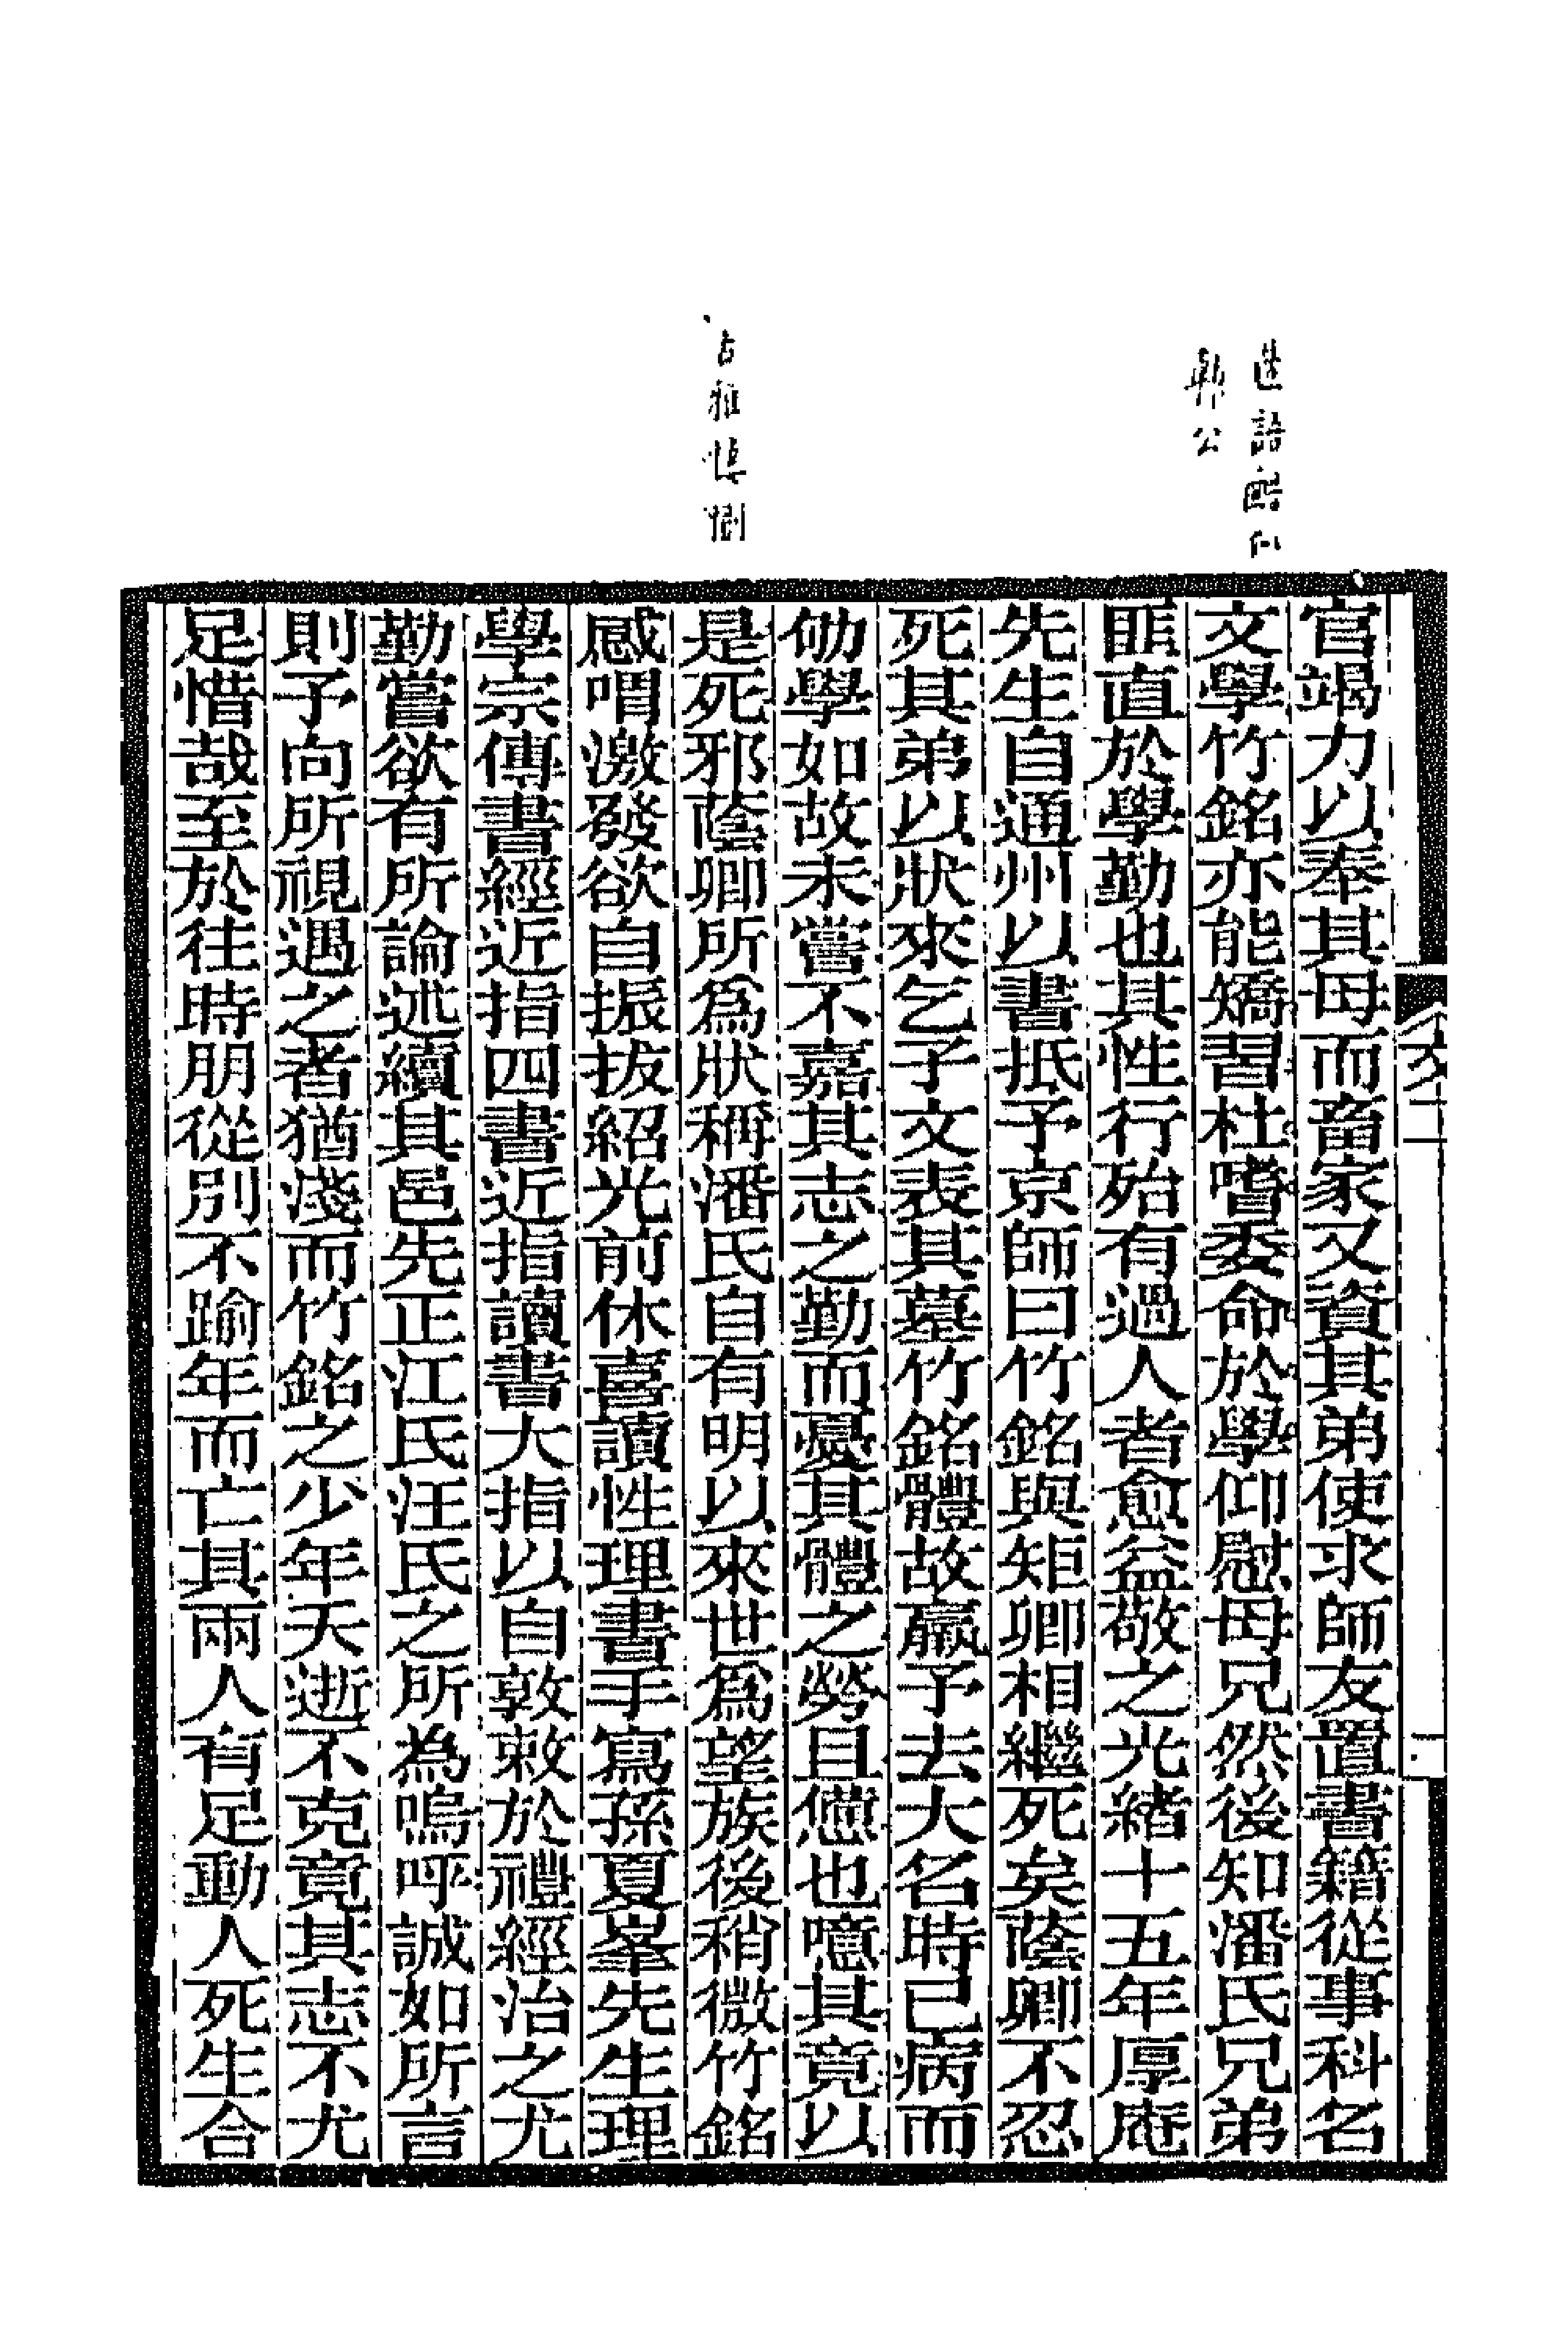 造語酷似
韓公
古雅悼惻
文二
官竭力以奉其母而畜家又資其弟使求師友置書籍從事科名
文學竹銘亦能矯習杜嗜委命於學仰慰母兄然後知潘氏兄弟
匪直於學勤也其性行殆有過人者愈益敬之光緒十五年厚庵
先生自通州以書抵予京師曰竹銘與矩卿相繼死矣蔭卿不忍
死其弟以狀來乞予文表其墓竹銘體故羸予去大名時已病而
劬學如故未嘗不嘉其志之勤而憂其體之勞且憊也噫其竟以
是死邪蔭卿所爲狀稱潘氏自有明以來世爲望族後稍微竹銘
感喟激發欲自振拔紹光前休喜讀性理書手寫孫夏峯先生理
學宗傳書經近指四書近指讀書大指以自敦敕於禮經治之尤
勤嘗欲有所論述續其邑先正江氏汪氏之所為嗚呼誠如所言
則予向所視遇之者猶淺而竹銘之少年夭逝不克竟其志不尤
足惜哉至於往時朋從別不踰年而亡其兩人有足動人死生合